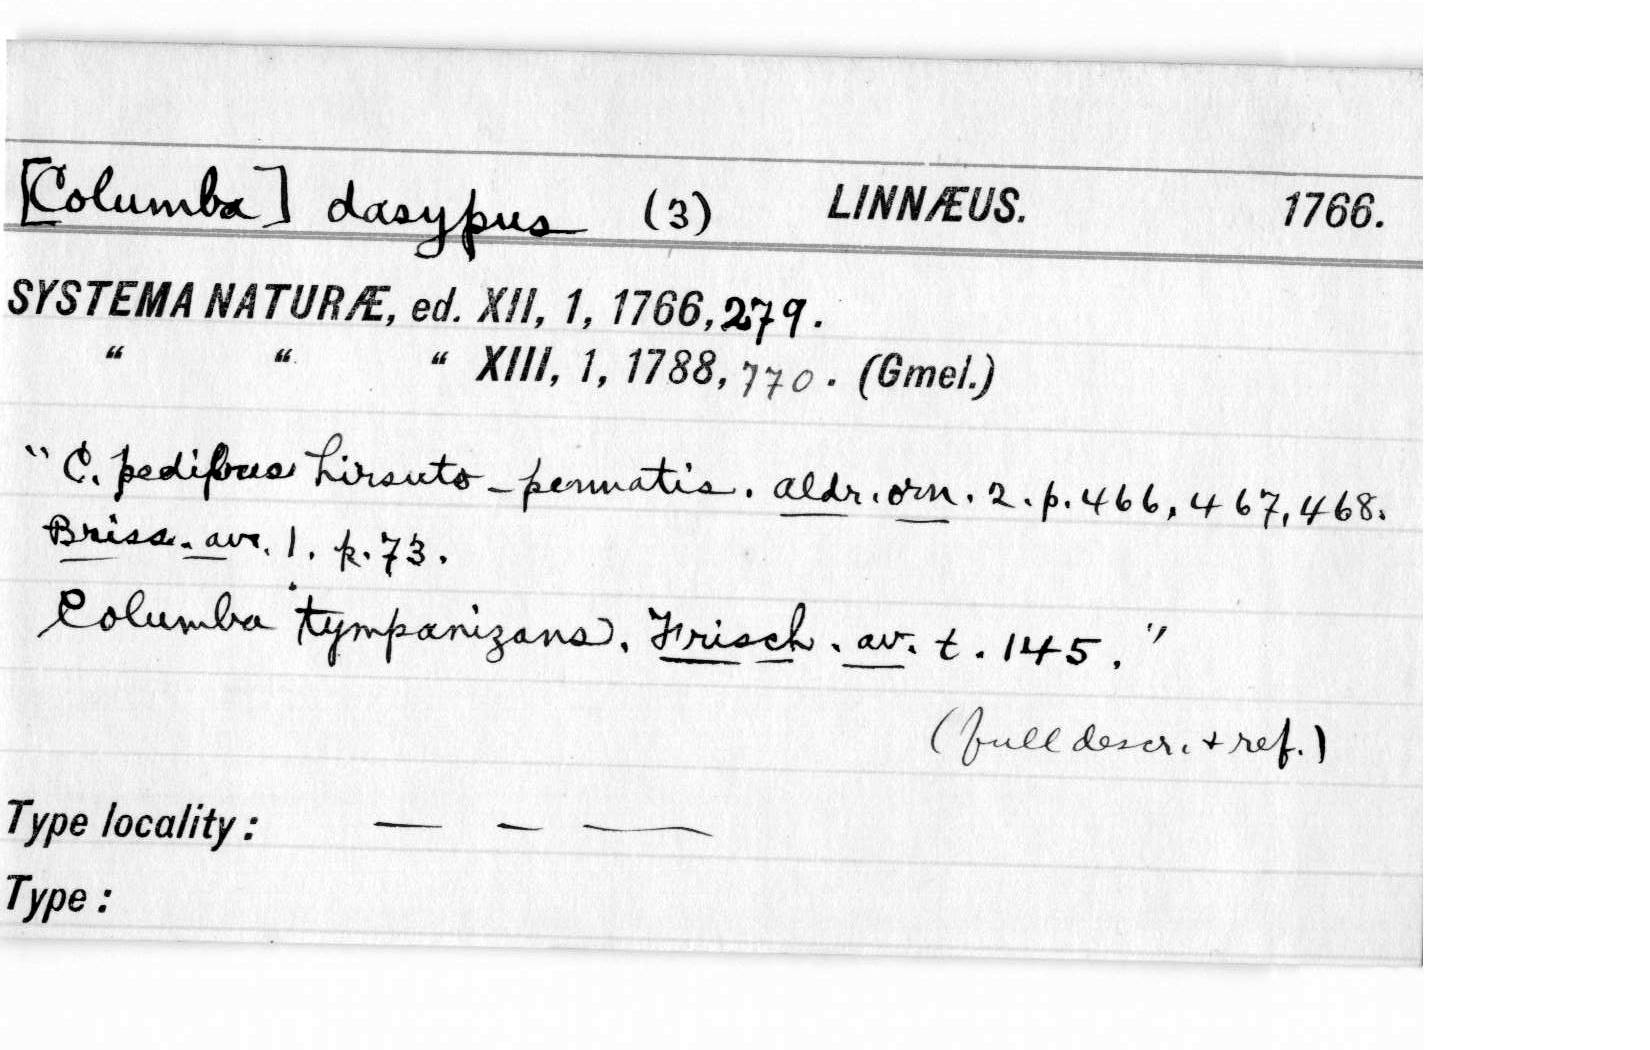 [Columba] dasypus (3) LINNÆUS. 1766.
SYSTEMA NATURÆ, ed. XII, 1, 1766, 279.
“ “ “ XIII, 1, 1788, 770. (Gmel.)
"C. pedibus hirsuto-pennatis. Aldr. orn. 2. p. 466, 467, 468.
Briss. av. 1. p. 73.
Columba tympanizans. Frisch. av. t. 145."
(full descr. + ref.)
Type locality: — — —
Type: